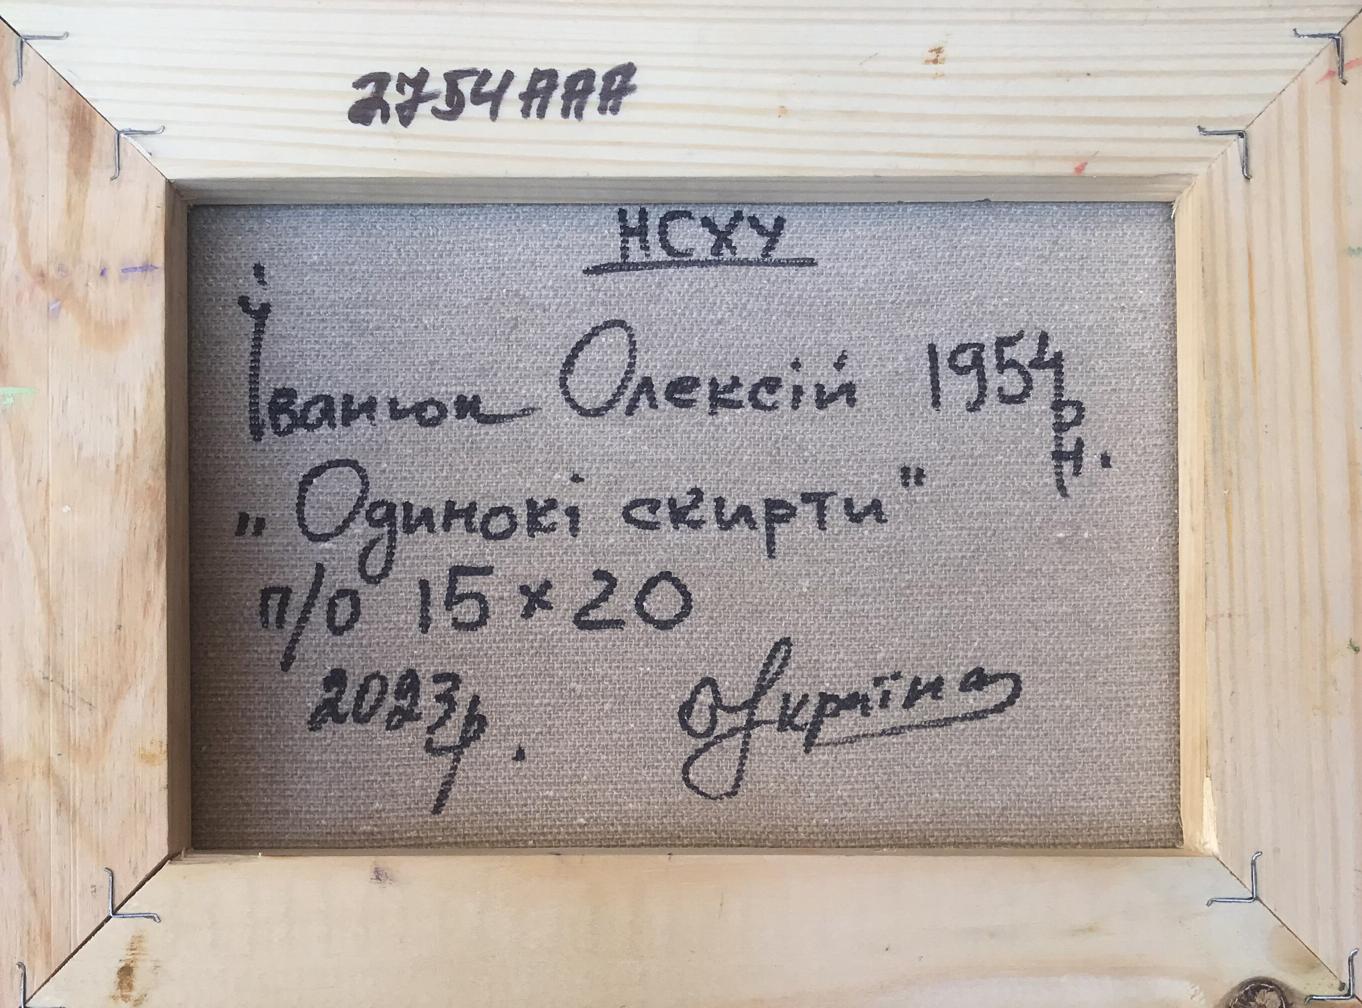 2754ААА
НСХУ
Іванюк Олексій 1954 р н.
„Одинокі скирти"
п/о 15 х 20
2023р. Україна